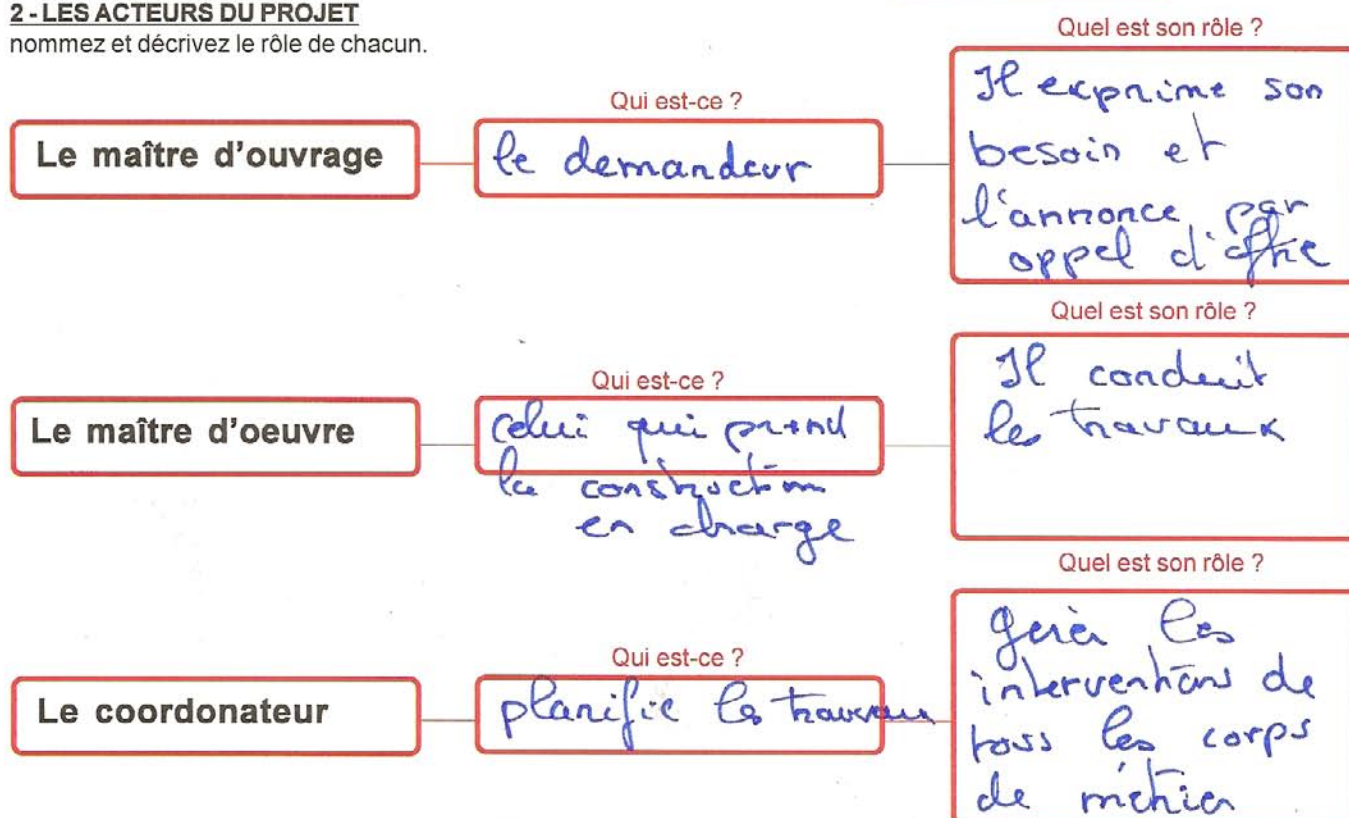 2 - LES ACTEURS DU PROJET
nommez et décrivez le rôle de chacun.
Le maître d'ouvrage
Qui est-ce ?
le demandeur
Quel est son rôle ?
Il exprime son
besoin et
l'annonce par
appel d'offre
Le maître d'oeuvre
Qui est-ce ?
celui qui prend
la construction
en charge
Quel est son rôle ?
Il conduit
les travaux
Le coordonateur
Qui est-ce ?
planifie les travaux
Quel est son rôle ?
gérer les
interventions de
tous les corps
de métier